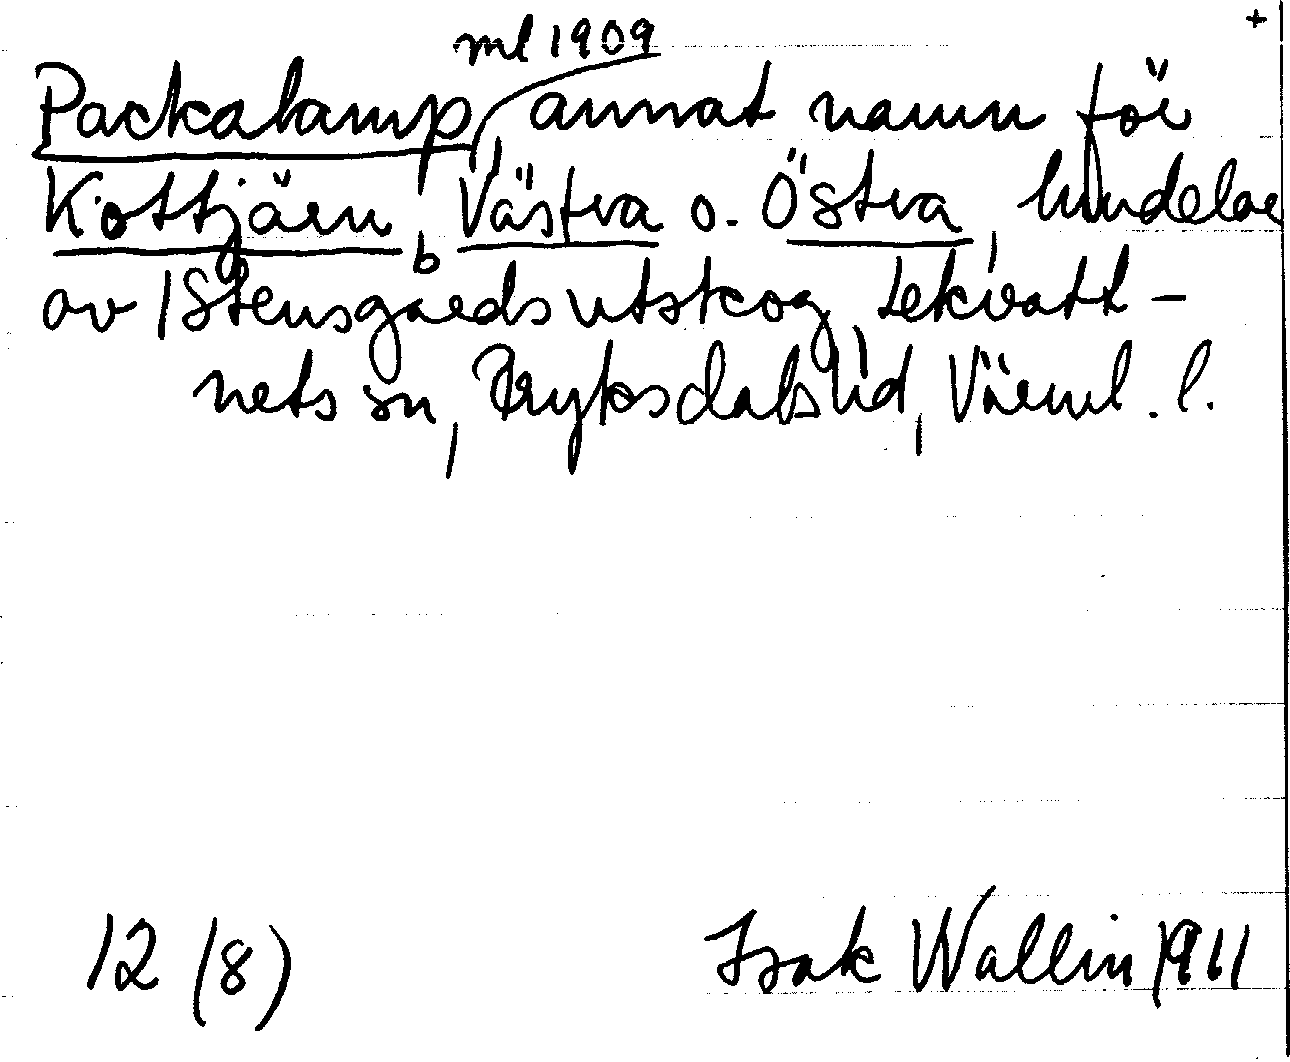 +
ml 1909
Packalamp, annat namn för
Kottjärn, Västra o. Östra, lindelar
av 1 Stensgårds utskog, Lekvatt-
nets sn, Fryksdals hd, Värml. l.
12 (8) Isak Wallin 1911